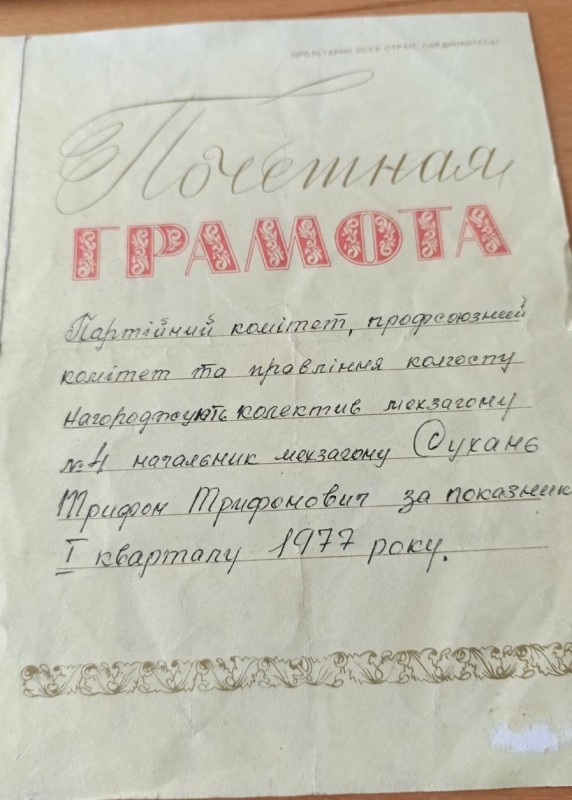 ПРОЛЕТАРИИ ВСЕХ СТРАН, СОЕДИНЯЙТЕСЬ!
Почетная
ГРАМОТА
Партійний комітет, профсоюзний
комітет та правління колгоспу
нагороджують колектив мехзагону
№4 начальник мехзагону Сухань
Трифон Трифонович за показник
I кварталу 1977 року.